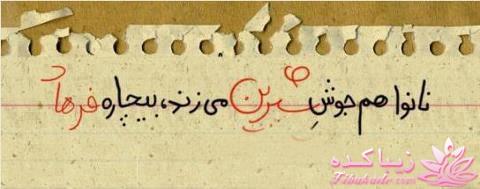 نانوا هم جوشِ شیرین می زند، بیچاره فرهاد
زیباکده
Zibakade.com